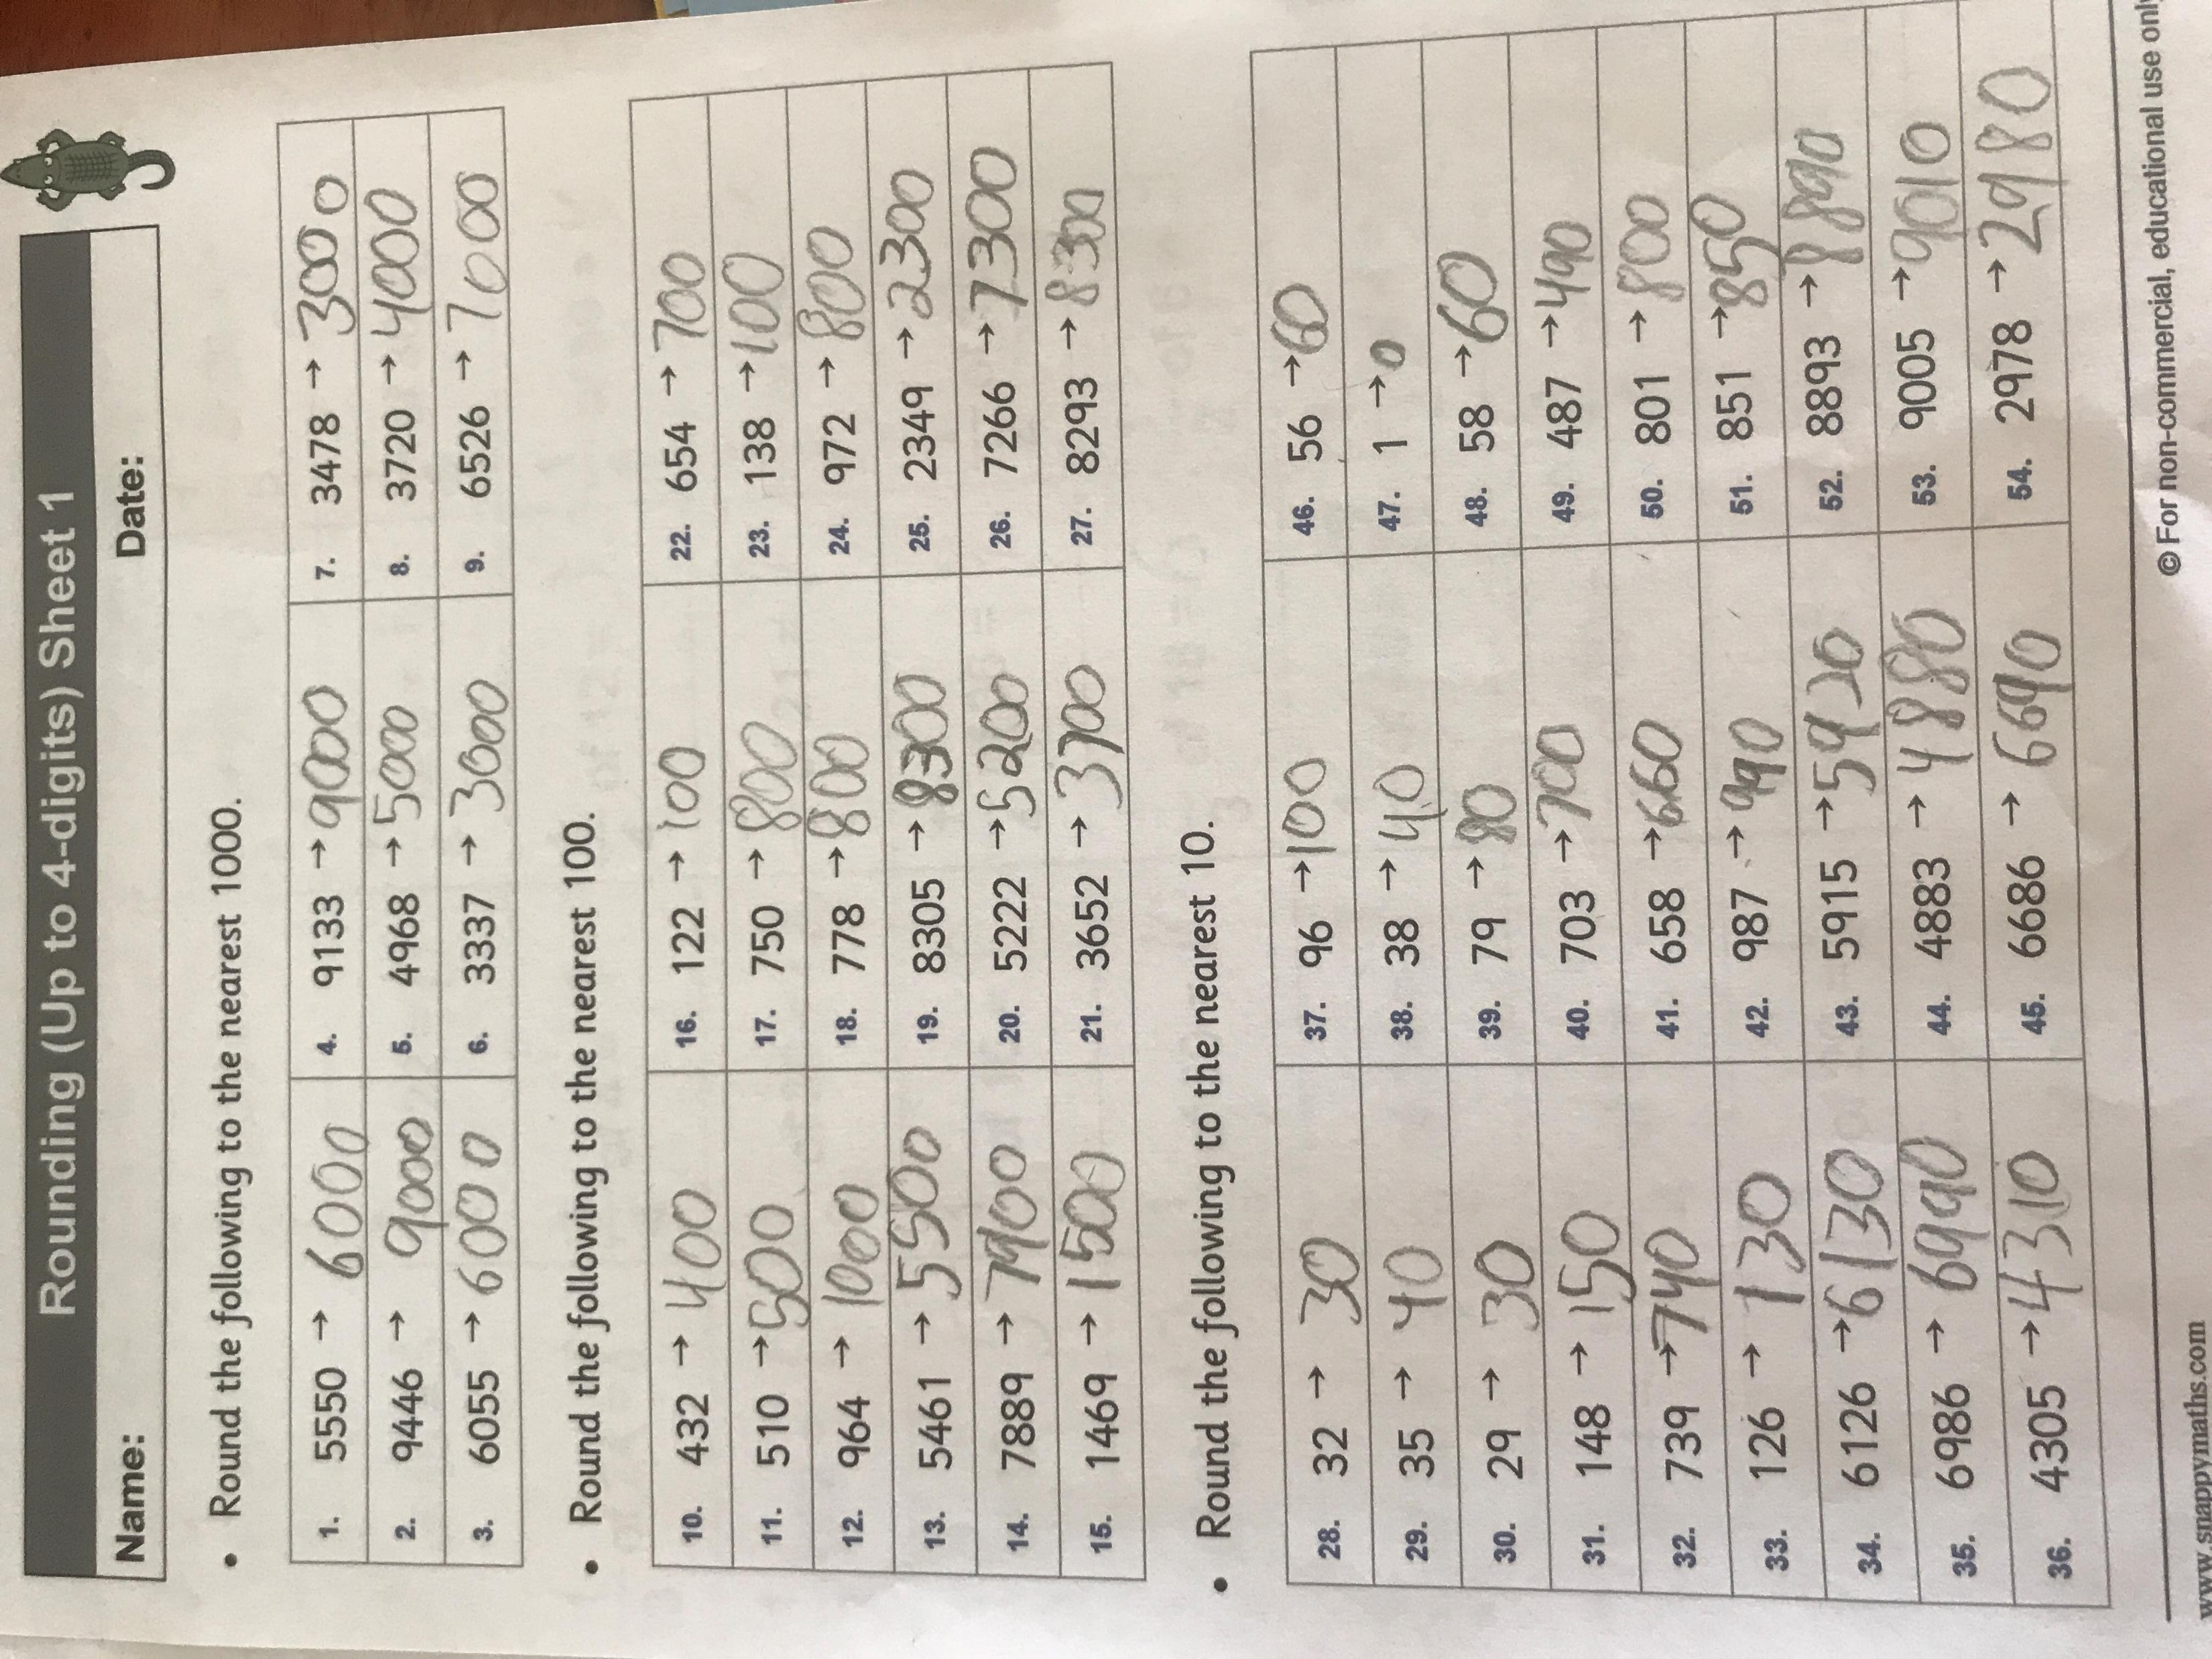 Rounding (Up to 4-digits) Sheet 1
Name: Date:
• Round the following to the nearest 1000.
1. 5550 → 6000 4. 9133 → 9000 7. 3478 → 3000
2. 9446 → 9000 5. 4968 → 5000 8. 3720 → 4000
3. 6055 → 6000 6. 3337 → 3000 9. 6526 → 7000
• Round the following to the nearest 100.
10. 432 → 400 16. 122 → 100 22. 654 → 700
11. 510 → 500 17. 750 → 800 23. 138 → 100
12. 964 → 1000 18. 778 → 800 24. 972 → 800
13. 5461 → 5500 19. 8305 → 8300 25. 2349 → 2300
14. 7889 → 7900 20. 5222 → 5200 26. 7266 → 7300
15. 1469 → 1500 21. 3652 → 3700 27. 8293 → 8300
• Round the following to the nearest 10.
28. 32 → 30 37. 96 → 100 46. 56 → 60
29. 35 → 40 38. 38 → 40 47. 1 → 0
30. 29 → 30 39. 79 → 80 48. 58 → 60
31. 148 → 150 40. 703 → 700 49. 487 → 490
32. 739 → 740 41. 658 → 660 50. 801 → 800
33. 126 → 130 42. 987 → 990 51. 851 → 850
34. 6126 → 6130 43. 5915 → 5920 52. 8893 → 8890
35. 6986 → 6990 44. 4883 → 4880 53. 9005 → 9010
36. 4305 → 4310 45. 6686 → 6690 54. 2978 → 2980
www.snappymaths.com © For non-commercial, educational use only